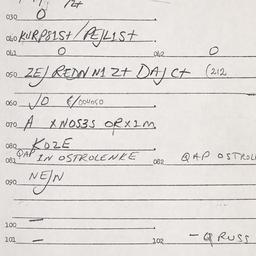 030 O
040 KURPSISt/PEJLISt
041 O 042 O
050 ZEJ REDNN1Zt DAJCt (212
060 JO
070 A XNOS3S ORXIM
080 KOZE
081 QAP IN OSTROLENKE 082 QAP OSTROL
090 NEJN
100 —
101 — 102 — QRUSS